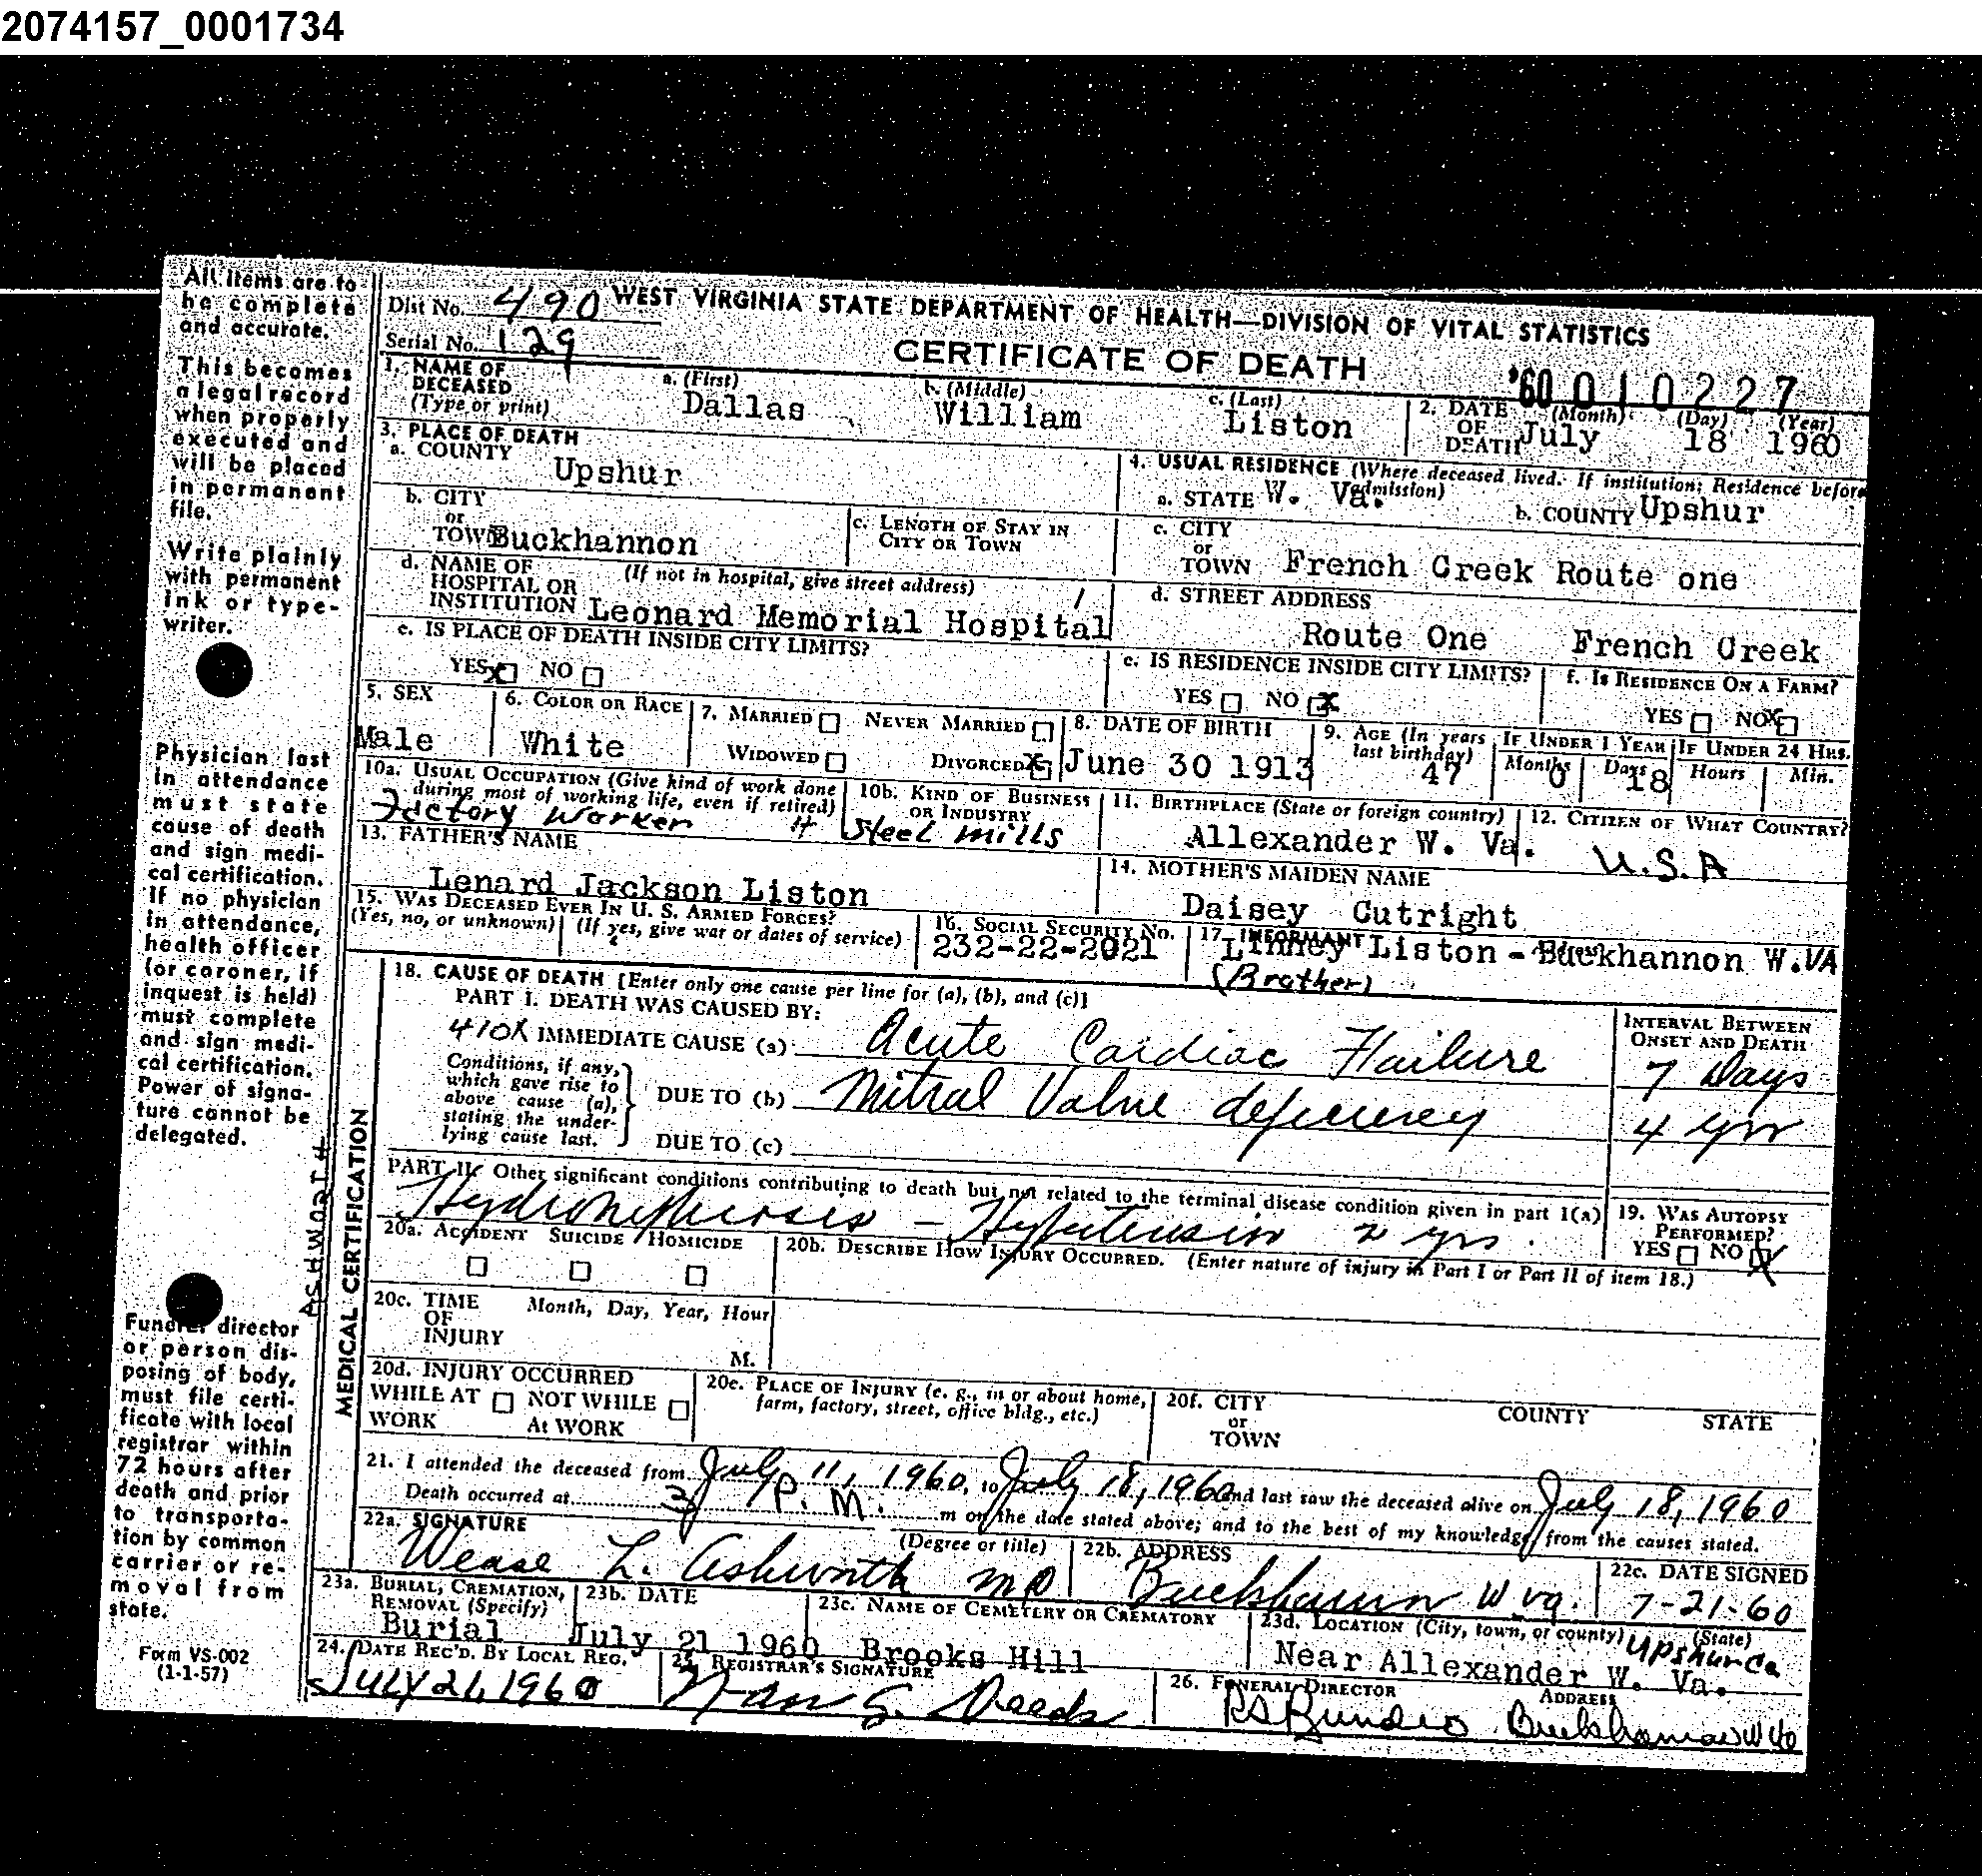 2074157_0001734
All items are to
be complete
and accurate.
This becomes
a legal record
when properly
executed and
will be placed
in permanent
file.
Write plainly
with permanent
ink or type-
writer.
Physician last
in attendance
must state
cause of death
and sign medi-
cal certification.
If no physician
in attendance,
health officer
(or coroner, if
inquest is held)
must complete
and sign medi-
cal certification.
Power of signa-
ture cannot be
delegated.
ASHWORTH
Funeral director
or person dis-
posing of body,
must file certi-
ficate with local
registrar within
72 hours after
death and prior
to transporta-
tion by common
carrier or re-
moval from
state.
Form VS-002
(1-1-57)
Dist No. 490 WEST VIRGINIA STATE DEPARTMENT OF HEALTH—DIVISION OF VITAL STATISTICS
Serial No. 129 CERTIFICATE OF DEATH '60 010227
1. NAME OF DECEASED (Type or print) a. (First) Dallas b. (Middle) William c. (Last) Liston
2. DATE OF DEATH (Month) July (Day) 18 (Year) 1960
3. PLACE OF DEATH
a. COUNTY Upshur
4. USUAL RESIDENCE (Where deceased lived. If institution: Residence before admission)
a. STATE W. Va. b. COUNTY Upshur
b. CITY or TOWN Buckhannon c. LENGTH OF STAY IN CITY OR TOWN
c. CITY or TOWN French Creek Route one
d. NAME OF HOSPITAL OR INSTITUTION (If not in hospital, give street address) Leonard Memorial Hospital
d. STREET ADDRESS Route One French Creek
e. IS PLACE OF DEATH INSIDE CITY LIMITS?
YES x NO
e. IS RESIDENCE INSIDE CITY LIMITS?
YES NO x
f. IS RESIDENCE ON A FARM?
YES NO x
5. SEX Male
6. COLOR OR RACE White
7. MARRIED NEVER MARRIED
WIDOWED DIVORCED x
8. DATE OF BIRTH June 30 1913
9. AGE (In years last birthday) 47
IF UNDER 1 YEAR Months 0 Days 18
IF UNDER 24 HRS. Hours Min.
10a. USUAL OCCUPATION (Give kind of work done during most of working life, even if retired) Factory Worker
10b. KIND OF BUSINESS OR INDUSTRY Steel mills
11. BIRTHPLACE (State or foreign country) Allexander W. Va.
12. CITIZEN OF WHAT COUNTRY? U.S.A
13. FATHER'S NAME Lenard Jackson Liston
14. MOTHER'S MAIDEN NAME Daisey Cutright
15. WAS DECEASED EVER IN U. S. ARMED FORCES?
(Yes, no, or unknown) (If yes, give war or dates of service)
16. SOCIAL SECURITY NO. 232-22-2021
17. INFORMANT Linney Liston - Buckhannon W.VA
(Brother)
MEDICAL CERTIFICATION
18. CAUSE OF DEATH [Enter only one cause per line for (a), (b), and (c)]
PART I. DEATH WAS CAUSED BY:
410X IMMEDIATE CAUSE (a) Acute Cardiac Failure
INTERVAL BETWEEN ONSET AND DEATH
7 Days
Conditions, if any, which gave rise to above cause (a), stating the underlying cause last.
DUE TO (b) Mitral Valve deficiency 4 yrs
DUE TO (c)
PART II. Other significant conditions contributing to death but not related to the terminal disease condition given in part 1(a)
Hydronephrosis - Hypertension 2 yrs.
19. WAS AUTOPSY PERFORMED?
YES NO X
20a. ACCIDENT SUICIDE HOMICIDE
20b. DESCRIBE HOW INJURY OCCURRED. (Enter nature of injury in Part I or Part II of item 18.)
20c. TIME OF INJURY Month, Day, Year, Hour
M.
20d. INJURY OCCURRED
WHILE AT WORK NOT WHILE AT WORK
20e. PLACE OF INJURY (e. g., in or about home, farm, factory, street, office bldg., etc.)
20f. CITY or TOWN COUNTY STATE
21. I attended the deceased from July 11, 1960, to July 18, 1960 and last saw the deceased alive on July 18, 1960
Death occurred at 3 P.M. m on the date stated above; and to the best of my knowledge, from the causes stated.
22a. SIGNATURE (Degree or title) L. Ashworth MD
22b. ADDRESS Buckhannon W.Va.
22c. DATE SIGNED 7-21-60
23a. BURIAL, CREMATION, REMOVAL (Specify) Burial
23b. DATE July 21 1960
23c. NAME OF CEMETERY OR CREMATORY Brooks Hill
23d. LOCATION (City, town, or county) (State) Upshur Co
Near Allexander W. Va.
24. DATE REC'D. BY LOCAL REG. JULY 21, 1960
25. REGISTRAR'S SIGNATURE
26. FUNERAL DIRECTOR ADDRESS
Buckhannon W Va